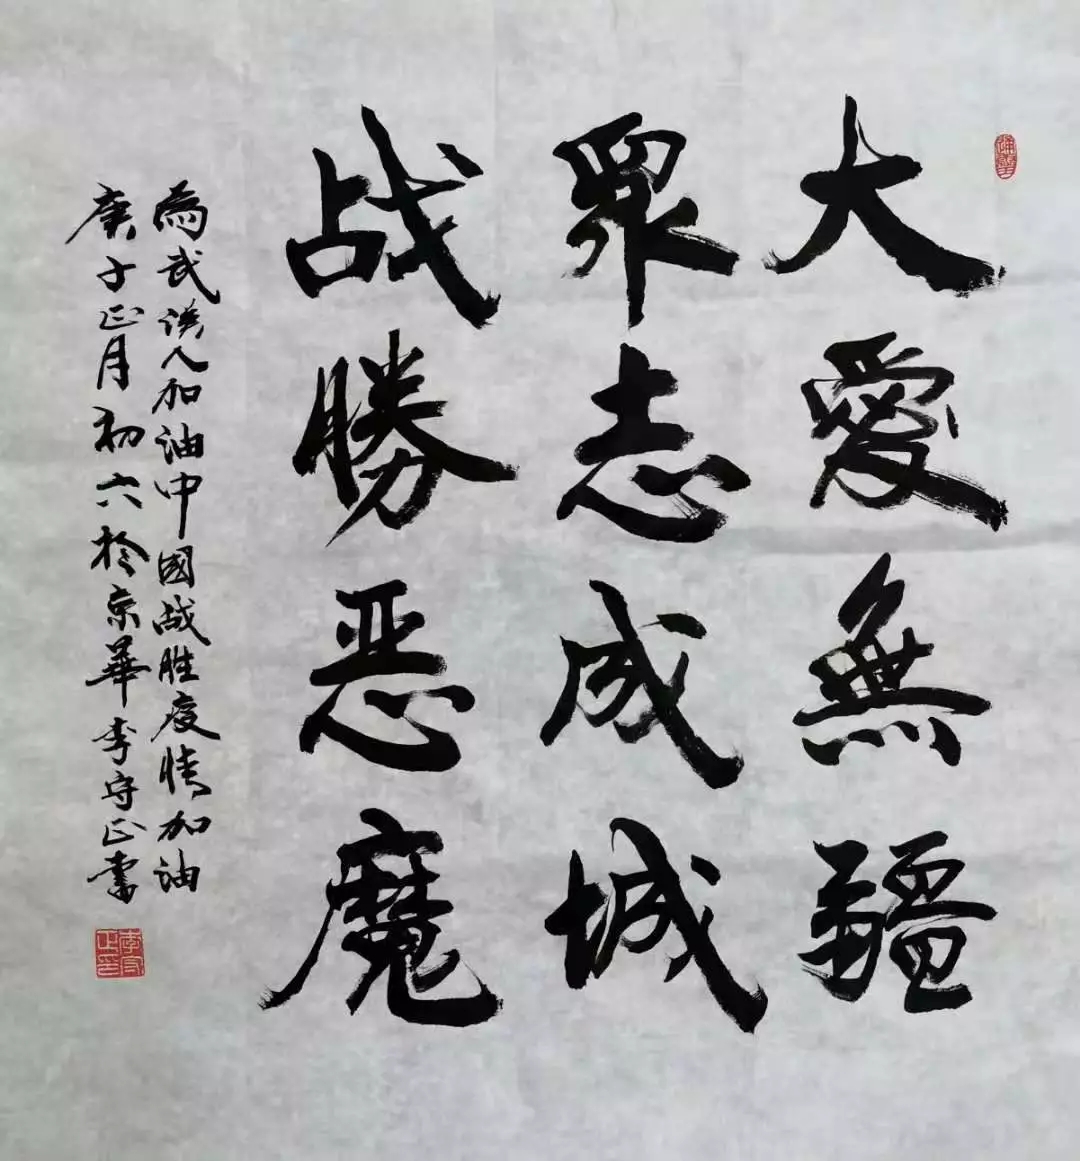 大愛無疆
眾志成城
战勝恶魔
為武漢人加油中國战胜疫情加油
庚子正月初六於京華李守正書
李守正印